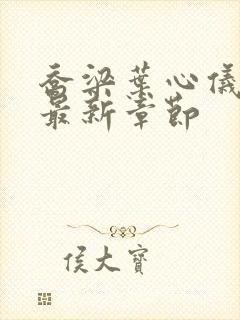 乔梁葉心儀
最新章節
侯大寶